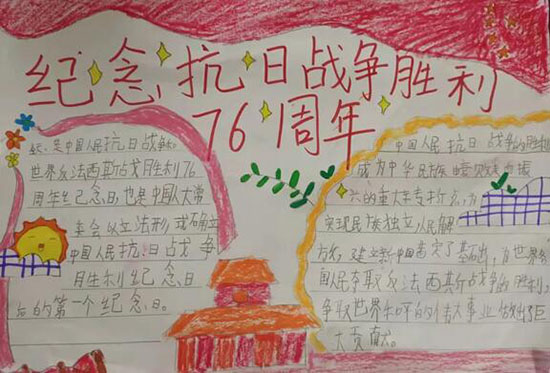 纪念抗日战争胜利
76周年
是中国人民抗日战争
世界反法西斯战争胜利76
周年纪念日,也是中国人大常
委会以立法形式确立
中国人民抗日战争
胜利纪念日
后的第一个纪念日。
中国人民抗日战争的胜利
成为中华民族
的重大转折点,为
实现民族独立,人民解
放,建立新中国奠定了基础,为世界各
国人民夺取反法西斯战争的胜利,
争取世界和平的伟大事业做出了巨
大贡献。